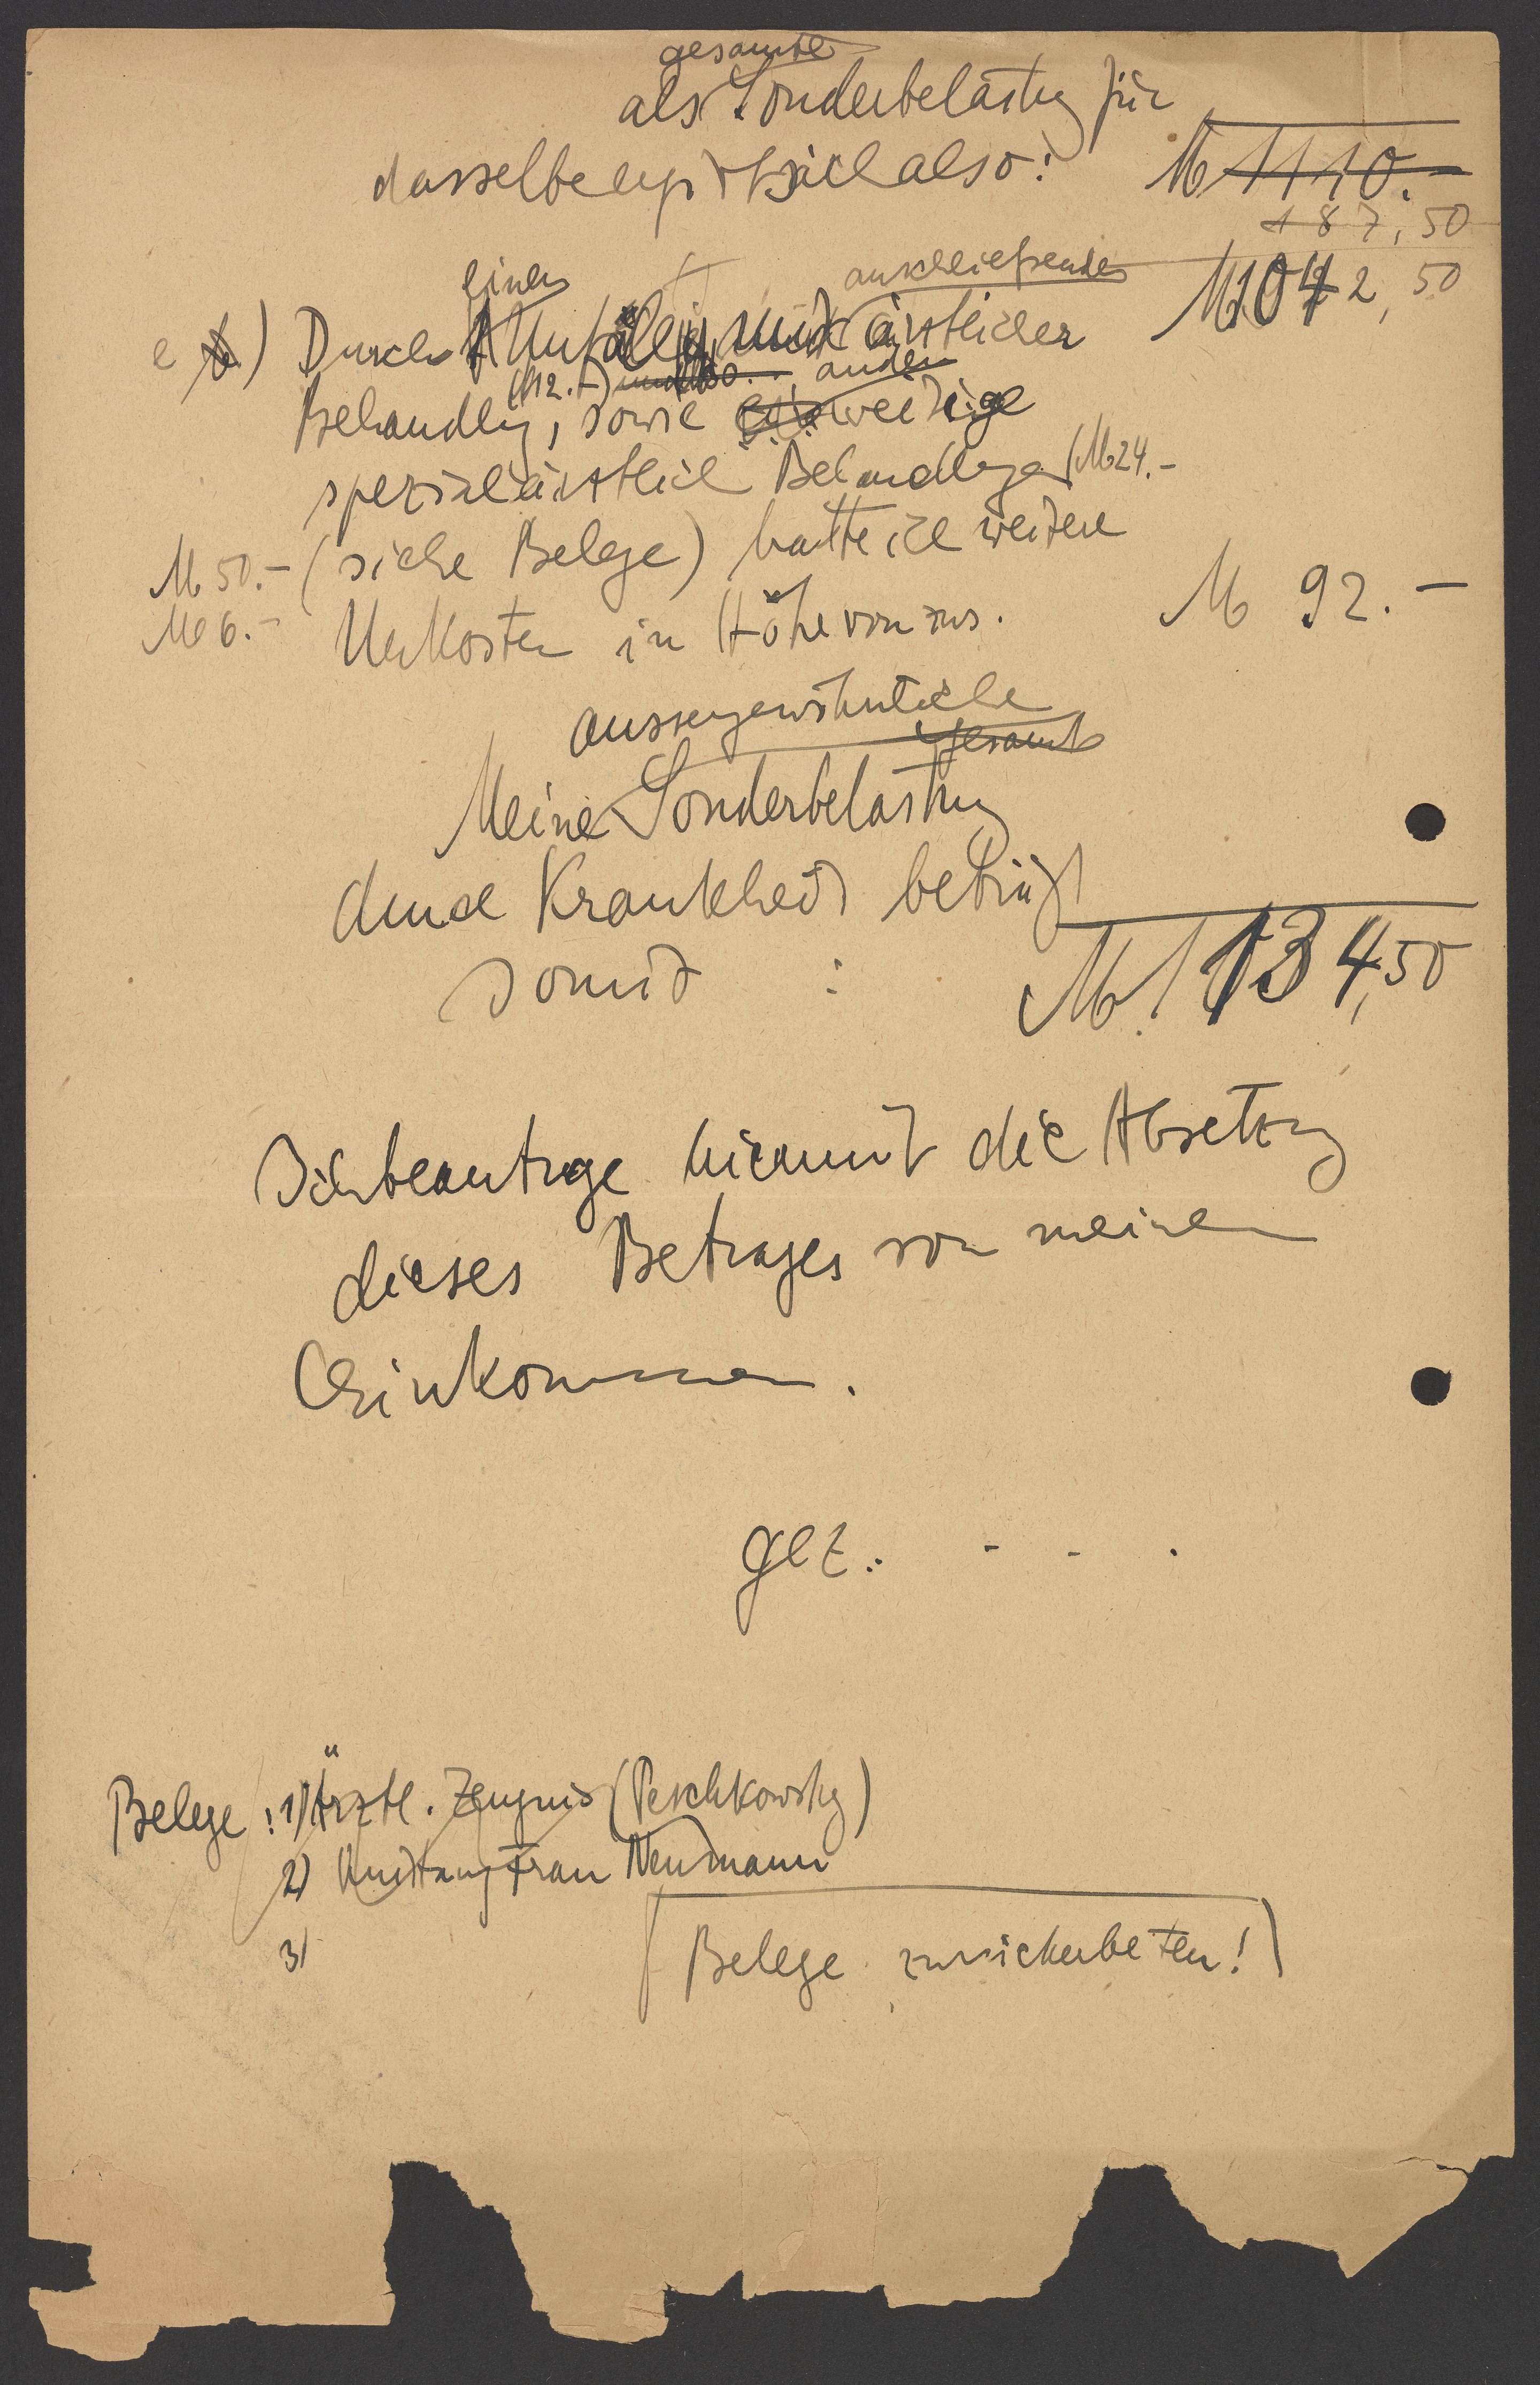 gesamte
als Sonderbelastung für
dasselbe ergibt sich also: M 1110.-
187,50
M 1042,50
einen anschließende
e) Durch Unfälle, mit ärztlicher
(M12.-) ander
Behandlg, sowie weitige
spezialärztliche Behandlungen (M24.-
M 50.- (siehe Belege) hatte ich weitere
M 6.- Unkosten in Höhe von zus. M 92.-
aussergewöhnliche
gesamt
Meine Sonderbelastung
durch Krankheit beträgt
somit : M. 1134,50
Ich beantrage hiermit die Absetzung
dieses Betrages von meinem
Einkommen.
gez.: - - .
Belege: 1) Ärztl. Zeugnis (Peschkowsky)
2) Quittung Frau Neumann
3)
Belege zurückerbeten!